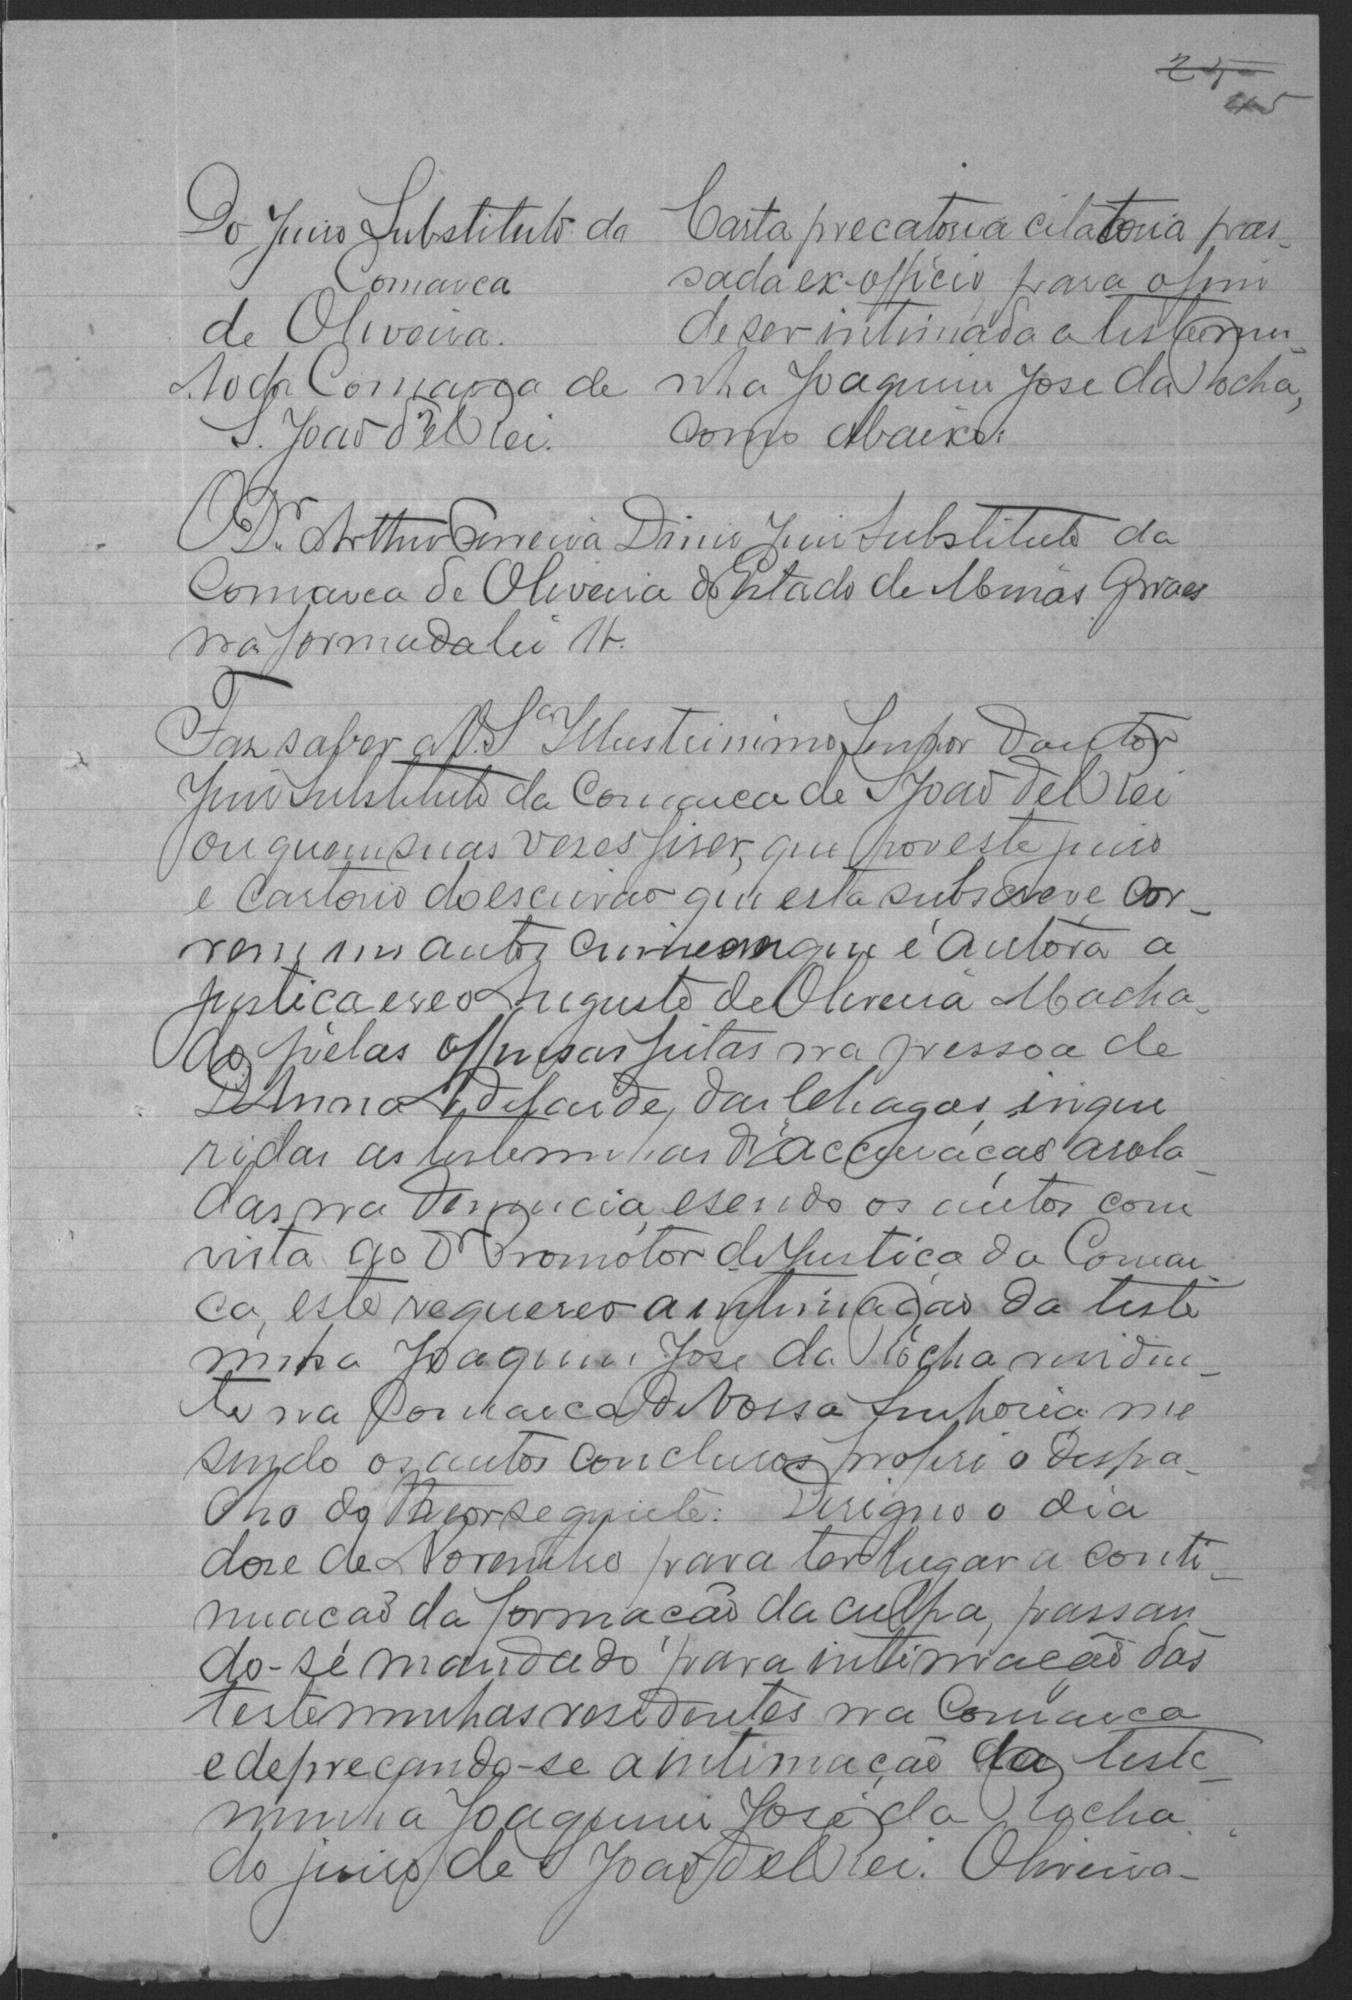 Do Juiso Substituto da
Comarca
de Oliveira.
Ao da Comarca de
S. João d'El Rei.
Carta precatoria citatoria pas-
sada ex-officio, para o fim
de ser intimada a testemu-
nha Joaquim José da Rocha,
como abaixo:
O Dr. Arthur Ferreira Diniz Juiz Substituto da
Comarca de Oliveira do Estado de Minas Geraes
na forma da lei &.
Faz saber a V. Sa Illustrissimo Senhor Doutor
Juiz Substituto da Comarca de S João del Rei
ou quem suas veses fiser, que por este juiso
e Cartorio do escrivão que esta subscreve cor-
rem uns autos crimes em que é autora a
justica e reo Augusto de Oliveira Macha-
do, pelas offensas feitas na pessoa de
D. Anna Adelaide das Chagas, inque
ridas as testemunhas da accusacão arola-
das na denuncia, e sendo os autos com
vista ao Dr Promotor de Justica da Comar-
ca, este requereo a intimação da teste
munha Joaquim José da Rocha residen-
te na Comarca de Vossa Senhoria me
sendo os autos conclusos proferi o despa-
cho do theor seguinte: Designo o dia
dose de Novembro para ter lugar a conti-
nuacão da formacão da culpa, passan
do-se mandado para intimacão das
testemunhas residentes na Comarca
e deprecando-se a intimação da teste-
munha Joaquim José da Rocha
do juiso de S João del Rei. Oliveira-